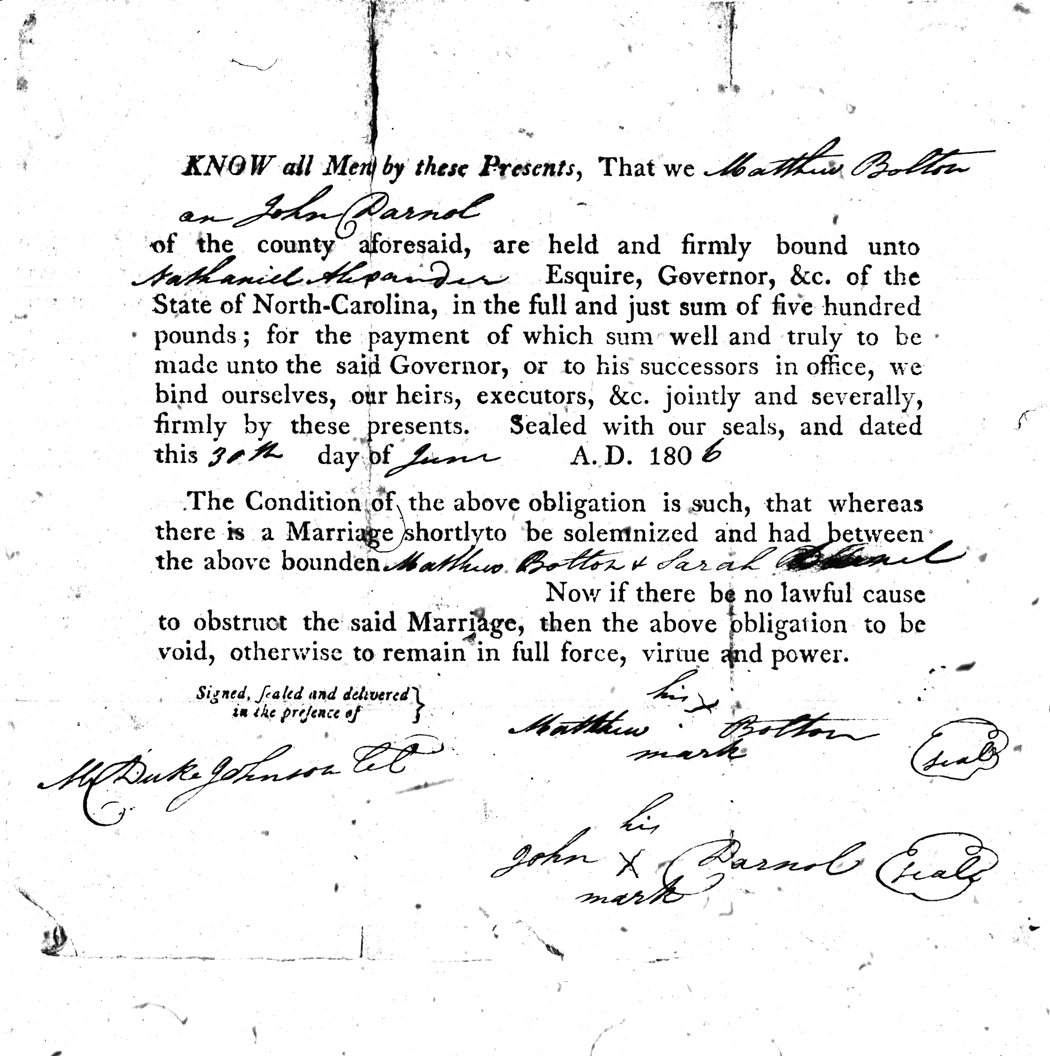 KNOW all Men by these Presents, That we Matthew Bolton
an John Darnol
of the county aforesaid, are held and firmly bound unto
Nathaniel Alexander Esquire, Governor, &c. of the
State of North-Carolina, in the full and just sum of five hundred
pounds; for the payment of which sum well and truly to be
made unto the said Governor, or to his successors in office, we
bind ourselves, our heirs, executors, &c. jointly and severally,
firmly by these presents. Sealed with our seals, and dated
this 30th day of June A.D. 1806
The Condition of the above obligation is such, that whereas
there is a Marriage shortlyto be solemnized and had between
the above bounden Matthew Bolton & Sarah
Now if there be no lawful cause
to obstruct the said Marriage, then the above obligation to be
void, otherwise to remain in full force, virtue and power.
Signed, sealed and delivered }
in the presence of
his
Matthew x Bolton seal
mark
M Duke Johnson
his
John X Darnol seal
mark